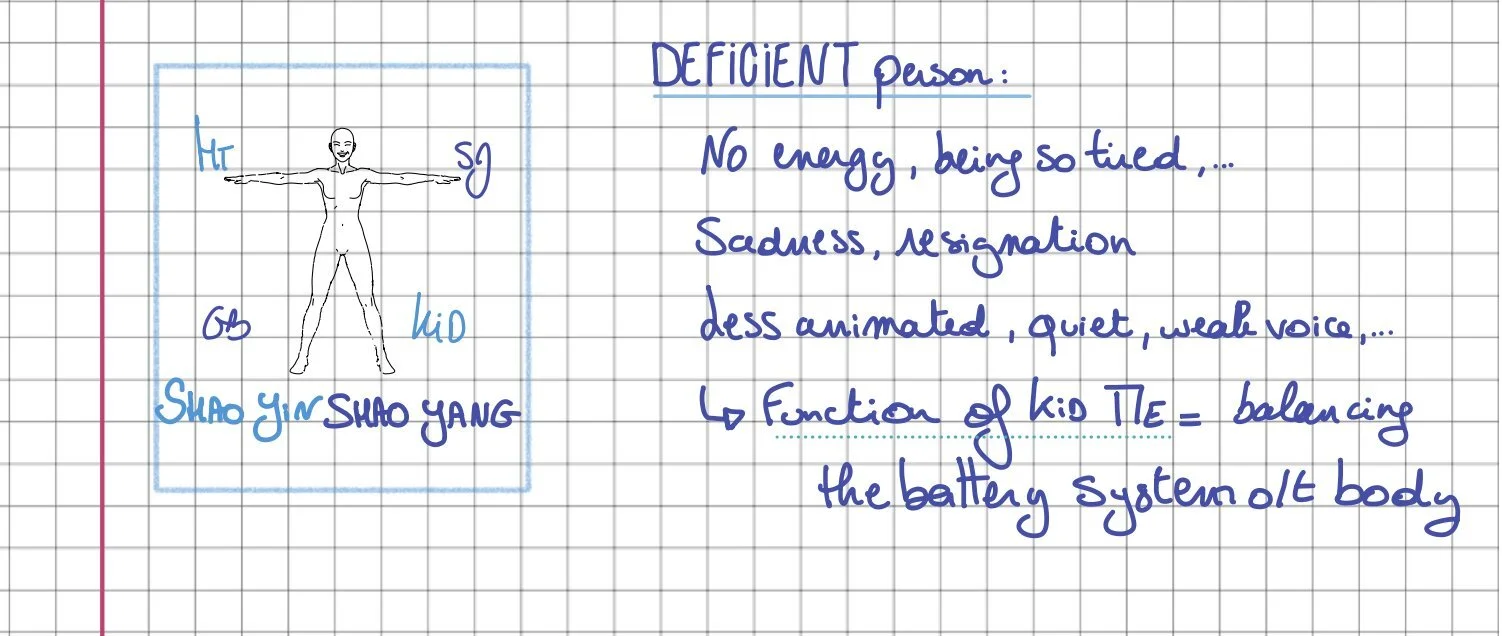 HT
SJ
GB
KiD
SHAO YiN SHAO YANG
DEFiCiENT person:
No energy, being so tired,...
Sadness, resignation
Less animated, quiet, weak voice,...
↳ Function of KiD ME = balancing
the battery system o/t body